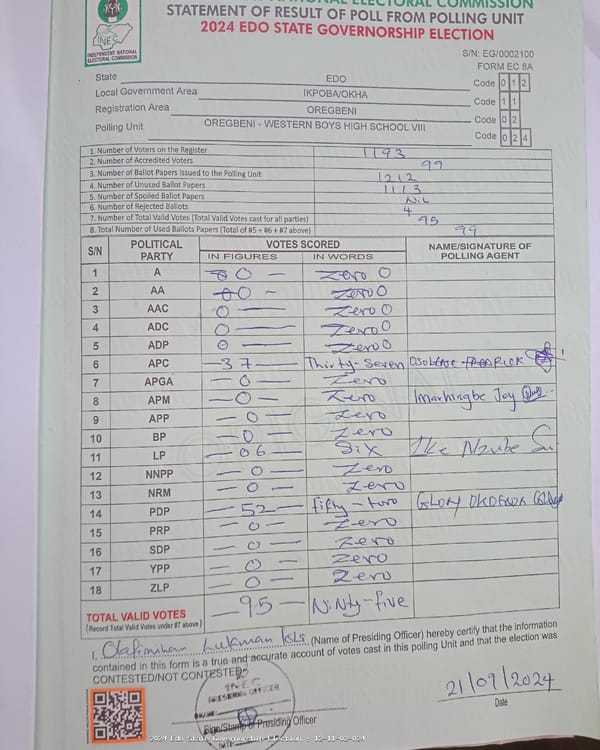 INDEPENDENT NATIONAL ELECTORAL COMMISSION
STATEMENT OF RESULT OF POLL FROM POLLING UNIT
2024 EDO STATE GOVERNORSHIP ELECTION
INEC
INDEPENDENT NATIONAL
ELECTORAL COMMISSION
S/N: EG/0002100
FORM EC 8A
State EDO Code 0 1 2
Local Government Area IKPOBA/OKHA Code 1 1
Registration Area OREGBENI Code 0 2
Polling Unit OREGBENI - WESTERN BOYS HIGH SCHOOL VIII Code 0 2 4
1. Number of Voters on the Register 1193
2. Number of Accredited Voters 99
3. Number of Ballot Papers Issued to the Polling Unit 1212
4. Number of Unused Ballot Papers 1113
5. Number of Spoiled Ballot Papers Nil
6. Number of Rejected Ballots 4
7. Number of Total Valid Votes (Total Valid Votes cast for all parties) 95
8. Total Number of Used Ballots Papers (Total of #5 + #6 + #7 above) 99
S/N POLITICAL PARTY VOTES SCORED NAME/SIGNATURE OF POLLING AGENT
IN FIGURES IN WORDS
1 A 0 - Zero 0
2 AA 0 - Zero 0
3 AAC 0 - Zero 0
4 ADC 0 - Zero 0
5 ADP 0 - Zero 0
6 APC - 37 - Thirty-Seven
7 APGA - 0 - Zero
8 APM - 0 - Zero Imarhingbe Joy
9 APP - 0 - Zero
10 BP - 0 - Zero
11 LP - 06 - Six Ike Nzube
12 NNPP - 0 - Zero
13 NRM - 0 - Zero
14 PDP - 52 - fifty-two GLORY
15 PRP - 0 - Zero
16 SDP - 0 - Zero
17 YPP - 0 - Zero
18 ZLP - 0 - Zero
TOTAL VALID VOTES - 95 - Ninty-five
(Record Total Valid Votes under #7 above)
I, Lukman (Name of Presiding Officer) hereby certify that the information
contained in this form is a true and accurate account of votes cast in this polling Unit and that the election was
CONTESTED/NOT CONTESTED.
INEC
PRESIDING OFFICER
21/09/2024
Date
Sign/Stamp of Presiding Officer
DATE
2024 Edo State Governorship Election : 12-11-02-024